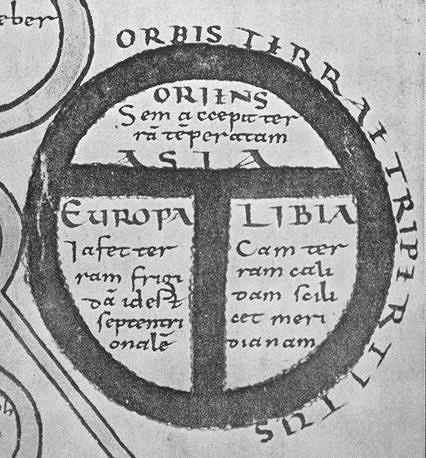 eber
ORBIS TERRAE TRIPERTITUS
ORIENS
Sem accepit ter
rā tēperatam
ASIA
EUROPA
Iafet ter
ram frigi
dā id est
septentri
onalē
LIBIA
Cam ter
ram cali
dam scili
cet meri
dianam